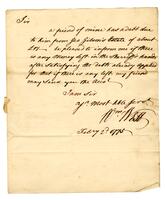 Sir
a friend of mine has a debt due
to him from Jas Gibson's Estate of about
£01.. be pleased to inform me if there
is any Money left in the Sheriff's hands
after satisfying the debts already applied
for that if there is any left, my friend
may send you the Acct
I am Sir
yr Most Obt Servt
Wm
Feb'y 2d 1775